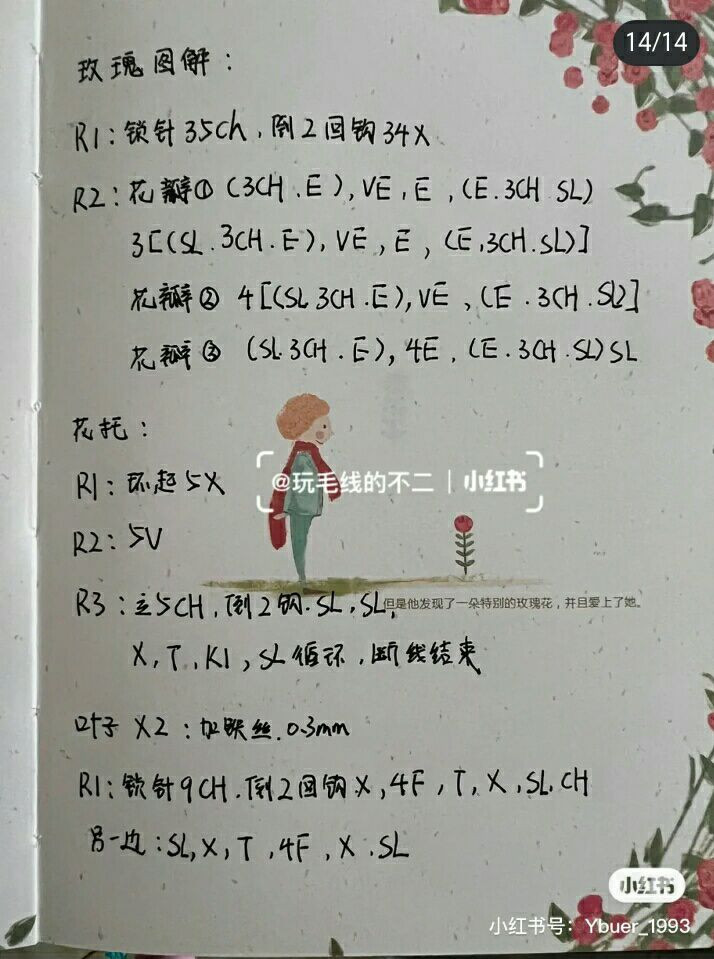 14/14
玫瑰图解：
R1：锁针35Ch，倒2回钩34X
R2：花瓣① (3CH.E), VE, E, (E.3CH.SL)
3[(SL.3CH.E), VE, E, (E,3CH.SL)]
花瓣② 4[(SL 3CH.E), VE, (E.3CH.SL)]
花瓣③ (SL.3CH.E), 4E, (E.3CH.SL) SL
花托：
@玩毛线的不二 | 小红书
R1：环起5X
R2：5V
R3：立5CH，倒2钩.SL, SL,
但是他发现了一朵特别的玫瑰花，并且爱上了她。
X, T, K1, SL循环，断线结束
叶子X2：加铁丝.0.3mm
R1：锁针9CH.倒2回钩X, 4F, T, X, SL, CH
另一边：SL, X, T, 4F, X.SL
小红书
小红书号：Ybuer_1993